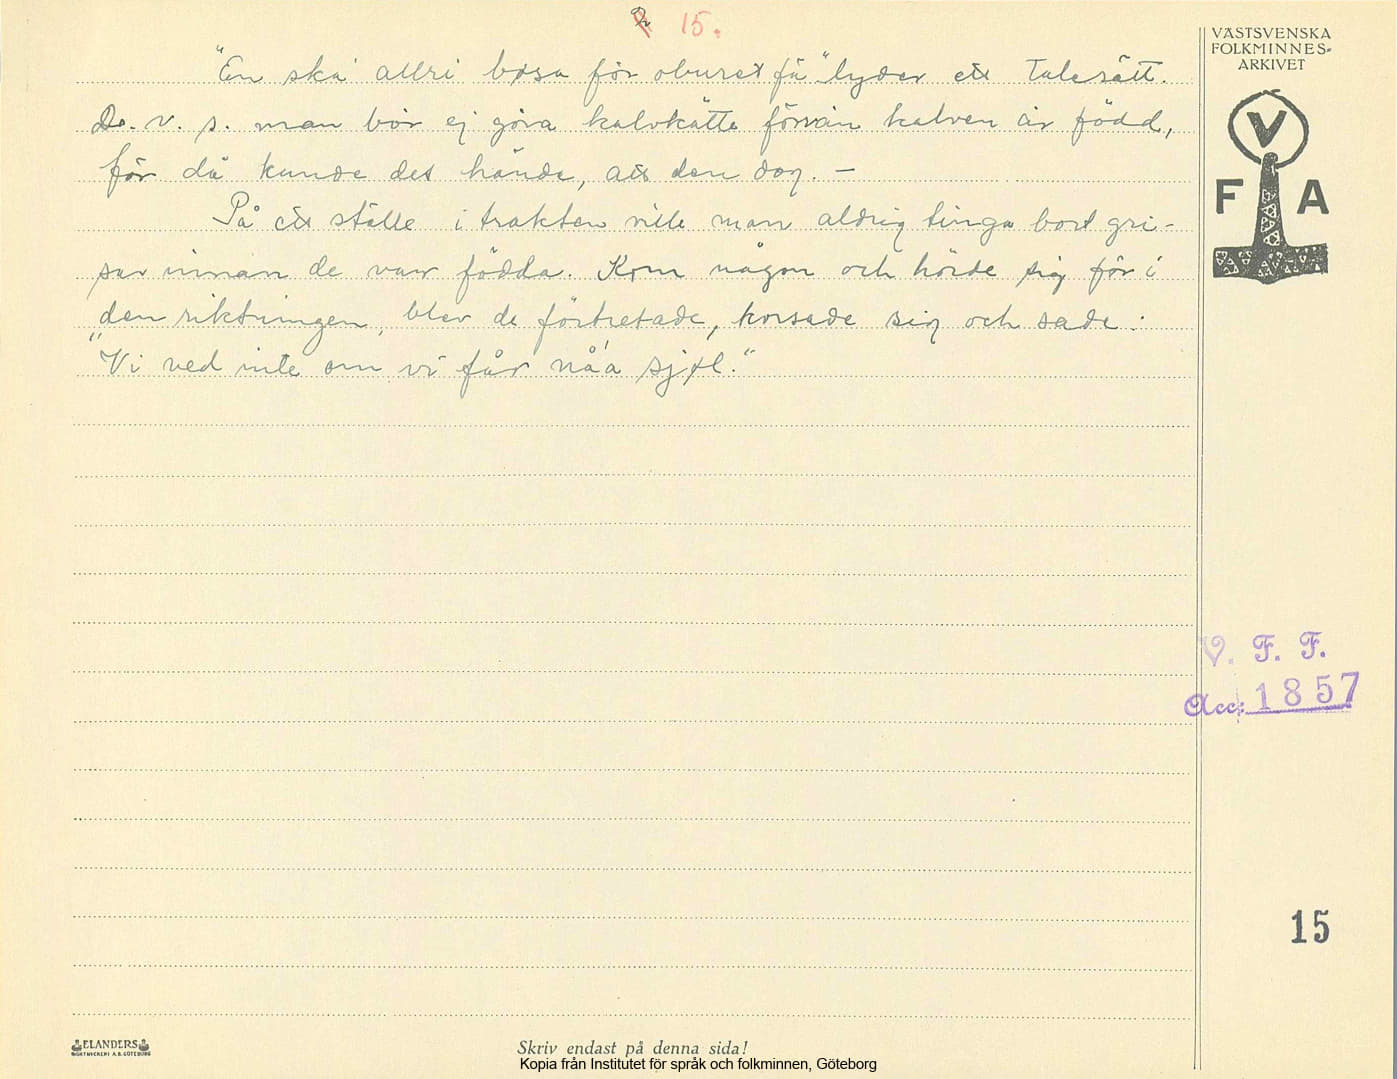 15.
VÄSTSVENSKA
FOLKMINNES-
ARKIVET
V
F A
"En ska' allri båsa för oburet få" lyder ett talesätt.
D. v. s. man bör ej göra kalvkätte förrän kalven är född,
för då kunde det hände, att den dog. —
På ett ställe i trakten ville man aldrig tinga bort gri-
sar innan de voro födda. Kom någon och hörde sig för i
den riktningen, blev de förtretade, korsade sig och sade:
"Vi ved inte om vi får nå'a sjøl."
V. F. F.
Acc: 1857
15
ELANDERS
BOKTRYCKERI A.B. GÖTEBORG
Skriv endast på denna sida!
Kopia från Institutet för språk och folkminnen, Göteborg